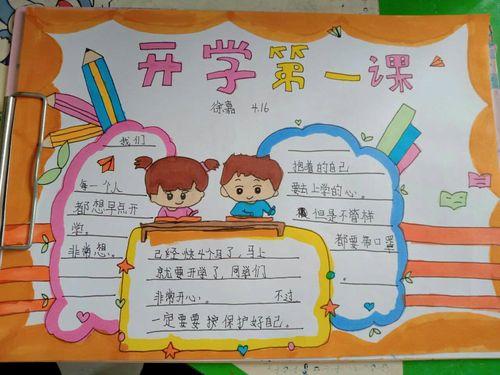 开学第一课
徐嘉 4.16
我们
每一个人
都想早点开
学。
非常想。
已经快4个月了,马上
就要开学了,同学们
非常开心。 不过
一定要要护保护好自己。
抱着的自己
要去上学的心。
但是不管样
都要带口罩
。